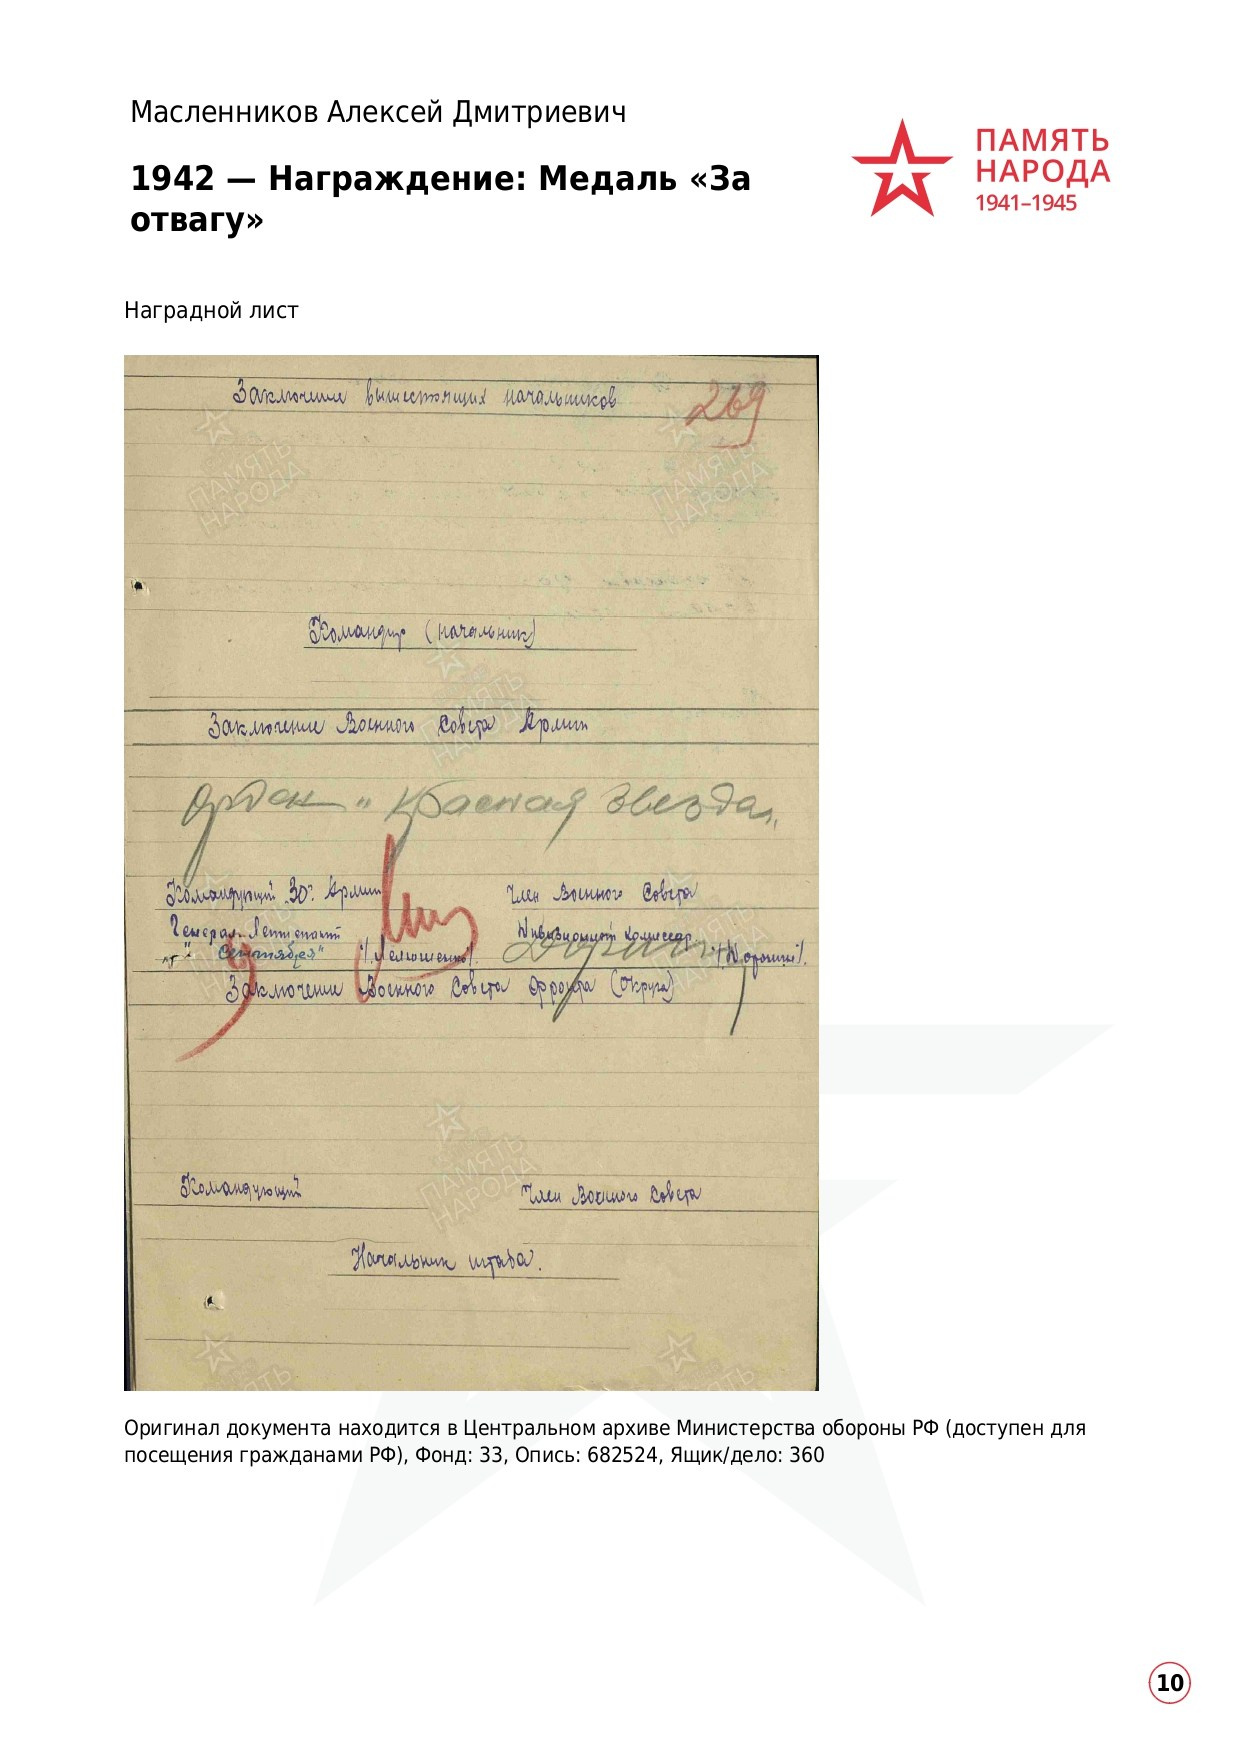 Масленников Алексей Дмитриевич
1942 — Награждение: Медаль «За
отвагу»
ПАМЯТЬ
НАРОДА
1941–1945
Наградной лист
Заключение вышестоящих начальников
269
Командир (начальник)
Заключение Военного Совета Армии
Орден "Красная Звезда"
Командующий 30й Армии
Член Военного Совета
Генерал-Лейтенант
Дивизионный комиссар
" Сентября"
/Лелюшенко/.
Заключение Военного Совета Фронта (Округа)
Командующий
Член Военного Совета
Начальник штаба.
Оригинал документа находится в Центральном архиве Министерства обороны РФ (доступен для
посещения гражданами РФ), Фонд: 33, Опись: 682524, Ящик/дело: 360
10